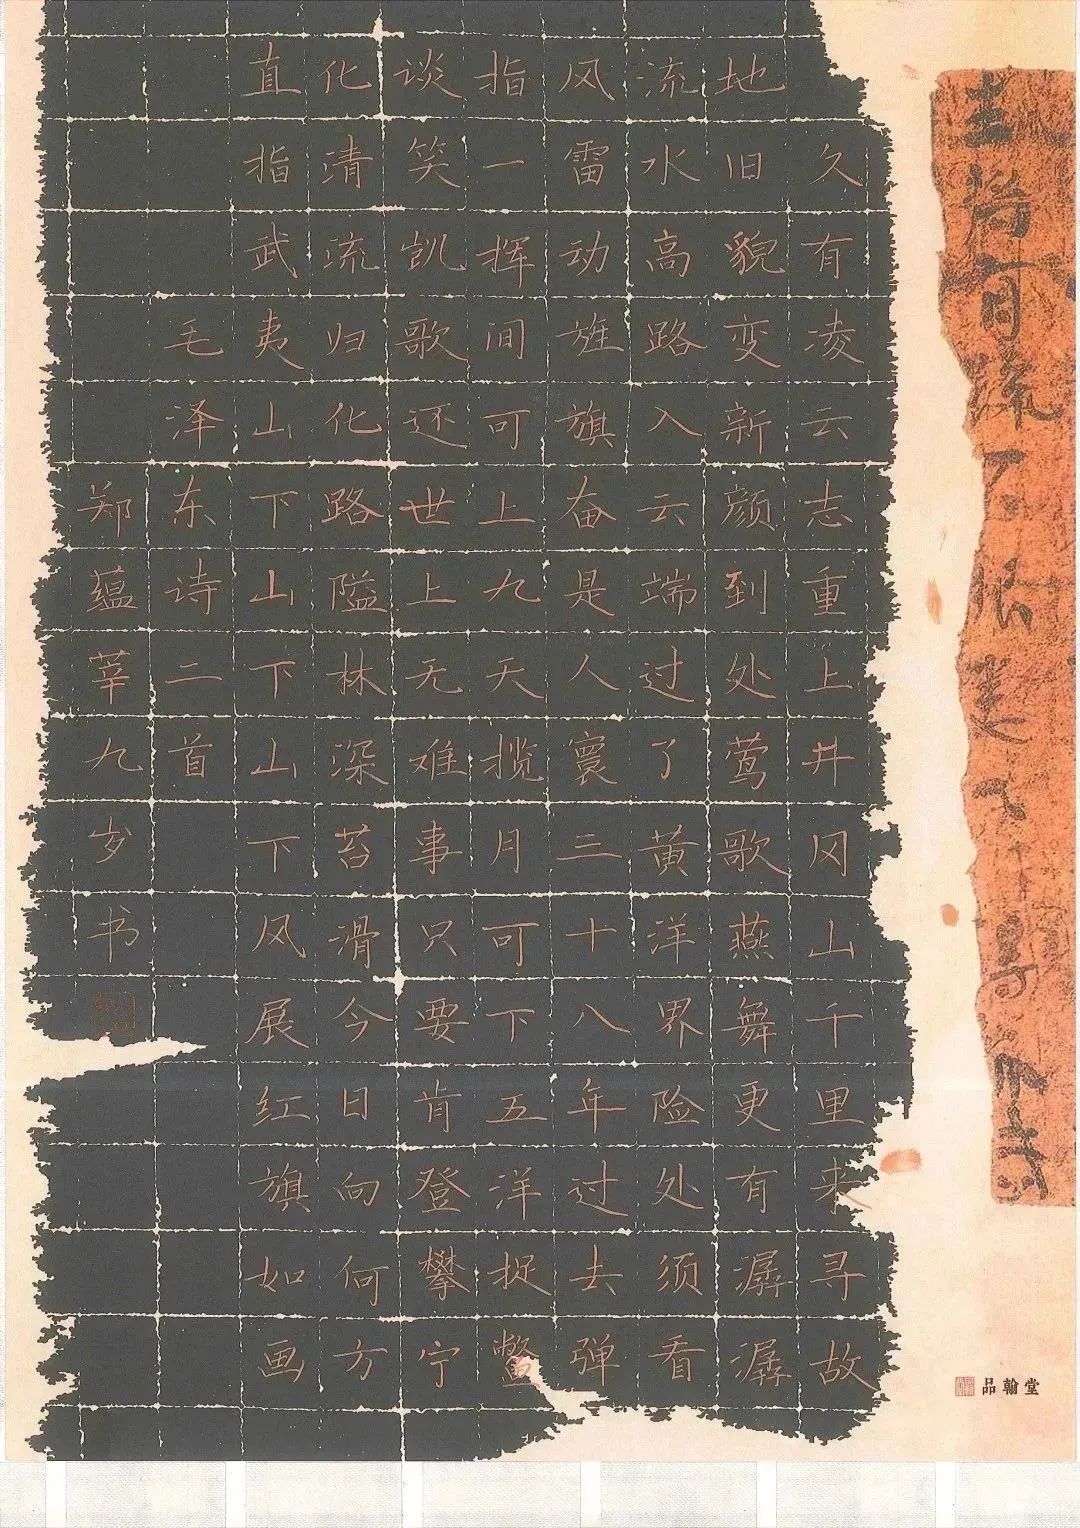 久有凌云志重上井冈山千里来寻故
地旧貌变新颜到处莺歌燕舞更有潺潺
流水高路入云端过了黄洋界险处须看
风雷动旌旗奋是人寰三十八年过去弹
指一挥间可上九天揽月可下五洋捉鳖
谈笑凯歌还世上无难事只要肯登攀宁
化清流归化路隘林深苔滑今日向何方
直指武夷山下山下山下风展红旗如画
毛泽东诗二首
郑蕴莘九岁书
品翰堂